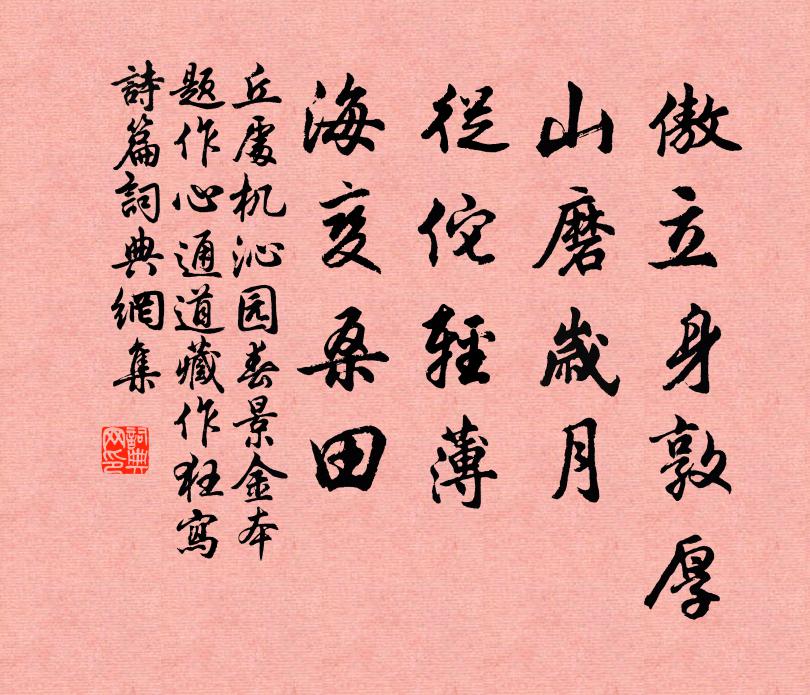 傲立身敦厚
山磨歲月
從侘輕薄
海变桑田
丘處机沁园春景金本
题作心通道藏作狂寫
詩篇詞典網集
詞典网印